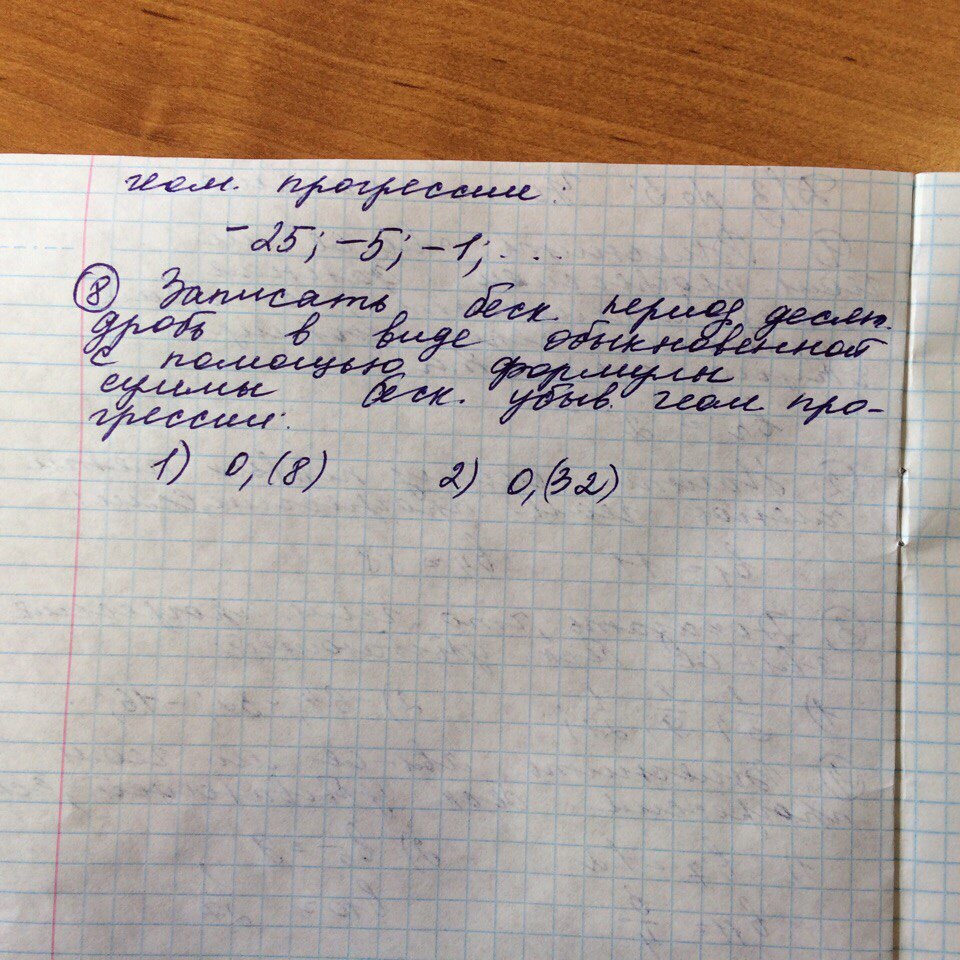 геом. прогрессии
-25; -5; -1; ...
8 Записать беск. период десят.
дробь в виде обыкновенной
с помощью формулы
суммы беск. убыв. геом. про-
грессии:
1) 0,(8) 2) 0,(32)